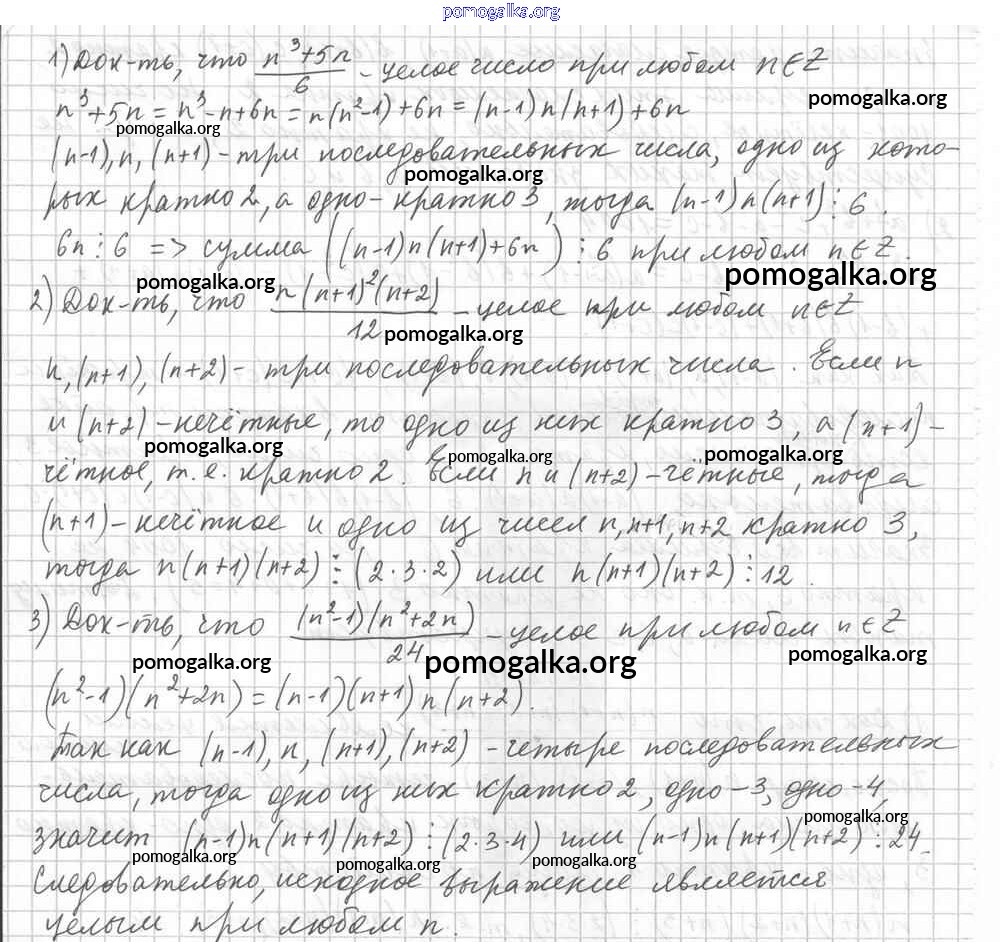 pomogalka.org
1) Док-ть, что (n³+5n)/6 - целое число при любом n∈Z
pomogalka.org
n³+5n = n³-n+6n = n(n²-1)+6n = (n-1)n(n+1)+6n
pomogalka.org
(n-1), n, (n+1) - три последовательных числа, одно из кото-
pomogalka.org
рых кратно 2, а одно - кратно 3, тогда (n-1)n(n+1)⋮6.
6n⋮6 => сумма ((n-1)n(n+1)+6n)⋮6 при любом n∈Z.
pomogalka.org
pomogalka.org
2) Док-ть, что n(n+1)²(n+2)/12 - целое при любом n∈Z
pomogalka.org
n, (n+1), (n+2) - три последовательных числа. Если n
и (n+2) - нечётные, то одно из них кратно 3, а (n+1) -
pomogalka.org
pomogalka.org
pomogalka.org
чётное, т.е. кратно 2. Если n и (n+2) - чётные, тогда
(n+1) - нечётное и одно из чисел n, n+1, n+2 кратно 3,
тогда n(n+1)(n+2)⋮(2·3·2) или n(n+1)(n+2)⋮12.
3) Док-ть, что (n²-1)(n²+2n)/24 - целое при любом n∈Z
pomogalka.org
pomogalka.org
pomogalka.org
(n²-1)(n²+2n) = (n-1)(n+1)n(n+2).
Так как (n-1), n, (n+1), (n+2) - четыре последовательных
числа, тогда одно из них кратно 2, одно - 3, одно - 4,
pomogalka.org
значит (n-1)n(n+1)(n+2)⋮(2·3·4) или (n-1)n(n+1)(n+2)⋮24.
pomogalka.org
pomogalka.org
pomogalka.org
Следовательно, исходное выражение является
целым при любом n.